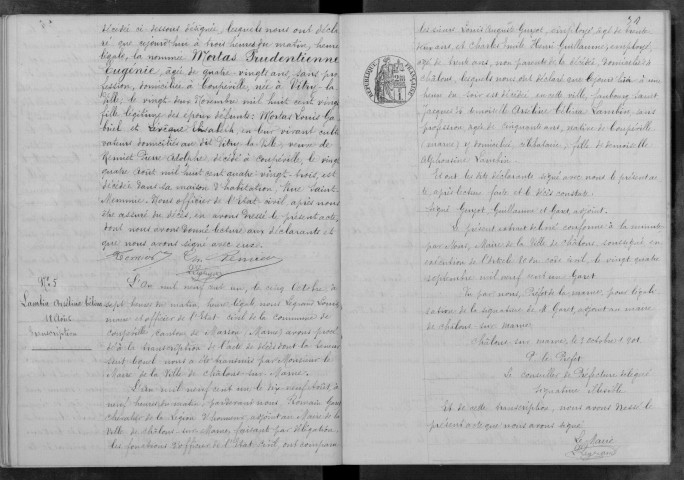 décédé ci dessous désignée, lesquels nous ont décla
ré que aujourd'hui à trois heures du matin, heure
légale, la nommée Mortas Prudentienne
Eugénie, âgée de quatre vingt ans, sans pro
fession, domiciliée à Coupéville, née à Vitry la
Ville, le vingt deux Novembre mil huit cent vingt
fille légitime des époux défunts: Mortas Louis Ga
briel et Elisabeth en leur vivant culti
vateurs domiciliés au dit Vitry la Ville; veuve de
Pierre Adolphe, décédé à Coupéville, le vingt
quatre Août mil huit cent quatre vingt-trois, est
décédée dans la maison d'habitation, Rue Saint
Memmie. Nous officier de l'état civil, après nous
être assuré du décès, en avons dressé le présent acte,
dont nous avons donné lecture aux déclarants et
que nous avons signé avec eux.
N° 5
Lambin Arséline Célina
Août
Transcription
L'an mil neuf cent un, le cinq Octobre, à
sept heures du matin, heure légale nous Legrain Louis,
maire et officier de l'état civil de la commune de
Coupéville, Canton de Marson, Marne, avons procé
dé à la transcription de l'acte de décès dont la teneur
suit lequel nous a été transmis par Monsieur le
Maire de la Ville de Châlons sur Marne.
L'an mil neuf cent un le dix neuf Août à
neuf heures du matin, pardevant nous, Romain Garet
Chevalier de la Légion d'honneur, adjoint au Maire de la
Ville de Châlons-sur-Marne, faisant par délégation
les fonctions d'officier de l'état civil, ont comparu
les sieurs Louis Auguste Guyot, employé, âgé de trente
deux ans, et Charles Emile Henri Guillaume, employé,
âgé de trente ans, non parents de la décédée, domiciliés à
Châlons, lesquels nous ont déclaré que hier à une
heure du soir est décédée en cette ville, faubourg Saint
Jacques, demoiselle Arséline Célina Lambin, sans
profession, âgée de cinquante ans, native de Coupéville
(Marne) y domiciliée, célibataire; fille de demoiselle
Alphonsine Lambin.
Et ont les dits déclarants signé avec nous le présent ac
te, après lecture faite et le décès constaté.
Signé Guyot, Guillaume et Garet adjoint.
Le présent extrait délivré conforme à la minute
par Nous, Maire de la Ville de Châlons, soussigné, en
exécution de l'article 80 du code civil, le vingt quatre
septembre mil neuf cent un. Garet.
Vu par nous, Préfet de la Marne, pour légali
sation de la signature de M. Garet, adjoint au maire
de Châlons sur Marne.
Châlons sur Marne, le 2 Octobre 1901
P. le Préfet
Le conseiller de Préfecture délégué
Signature illisible
Et de cette transcription, nous avons dressé le
présent acte que nous avons signé
Le Maire
RÉPUBLIQUE FRANÇAISE